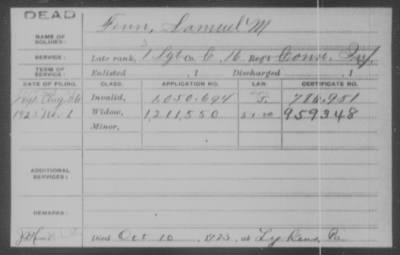 DEAD
NAME OF SOLDIER: Fenn, Samuel M
SERVICE: Late rank, 1 Sgt Co. C, 16 Reg't Conn. Inf.
TERM OF SERVICE: Enlisted , 1 Discharged , 1
DATE OF FILING. CLASS. APPLICATION NO. LAW. CERTIFICATE NO.
Aug. 26 Invalid, 1.050.694
1923 Nov. 1 Widow, 1211550 959348
Minor,
ADDITIONAL SERVICES:
REMARKS:
Died Oct 10, 1923, at Lykens, Pa